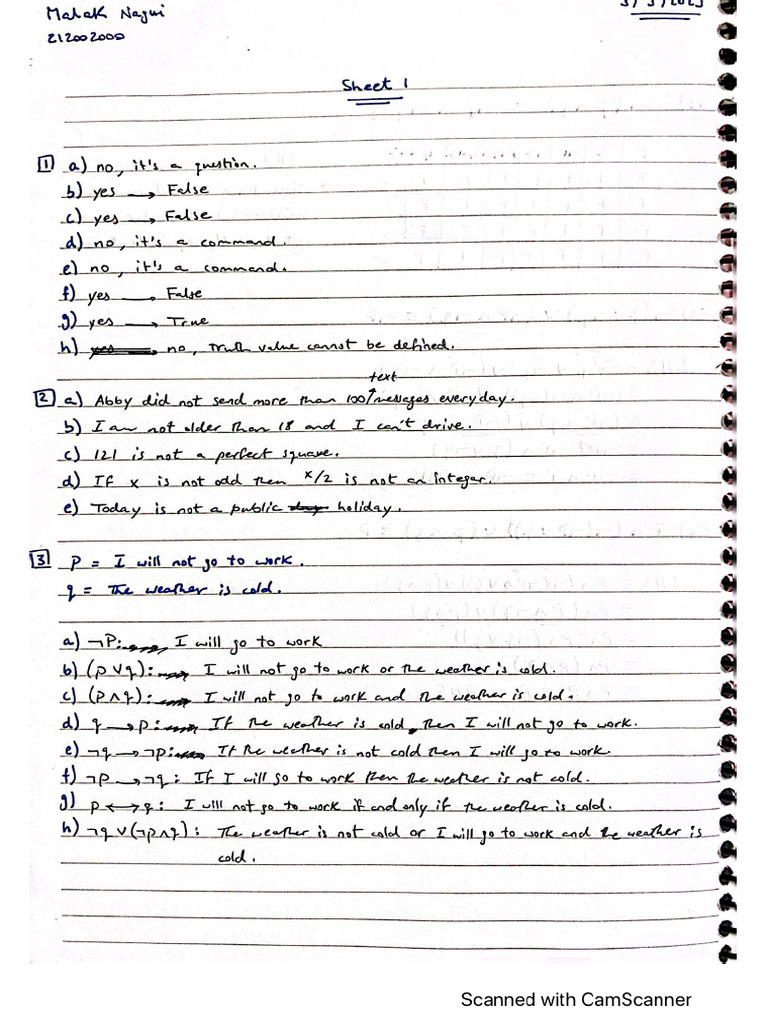 Malak Nagui
212002000
Sheet 1
1 a) no, it's a question.
b) yes → False
c) yes → False
d) no, it's a command.
e) no, it's a command.
f) yes → False
g) yes → True
h) no, truth value cannot be defined.
text
2 a) Abby did not send more than 100 messages everyday.
b) I am not older than 18 and I can't drive.
c) 121 is not a perfect square.
d) If x is not odd then x/2 is not an integer.
e) Today is not a public holiday.
3 P = I will not go to work.
q = The weather is cold.
a) ¬P: I will go to work
b) (p ∨ q): I will not go to work or the weather is cold.
c) (p ∧ q): I will not go to work and the weather is cold.
d) q → p: If the weather is cold, then I will not go to work.
e) ¬q → ¬p: If the weather is not cold then I will go to work.
f) ¬p → ¬q: If I will go to work then the weather is not cold.
g) p ↔ q: I will not go to work if and only if the weather is cold.
h) ¬q ∨ (¬p ∧ q): The weather is not cold or I will go to work and the weather is
cold.
Scanned with CamScanner